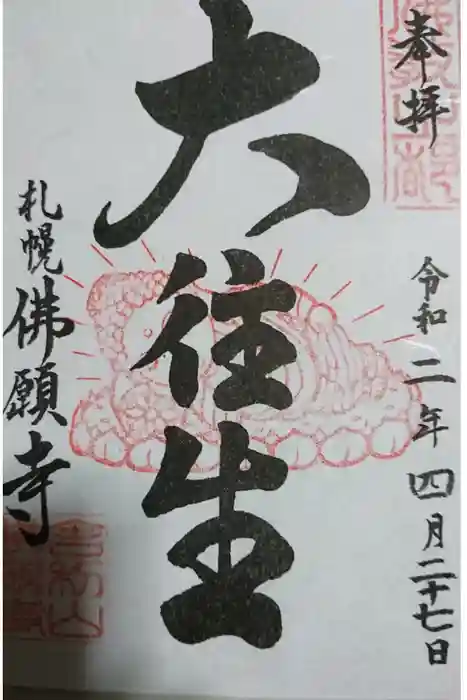 奉拝
令和二年四月二十七日
大往生
札幌
佛願寺